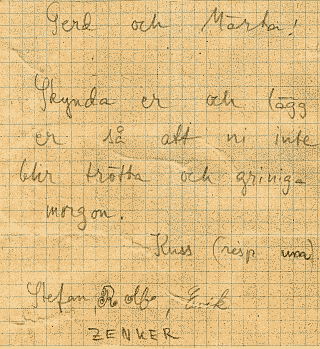 Gerd och Märta!
Skynda er och lägg
er så att ni inte
blir trötta och griniga
morgon.
Kuss (resp una)
Stefan, Rolfe, Erik
ZENKER